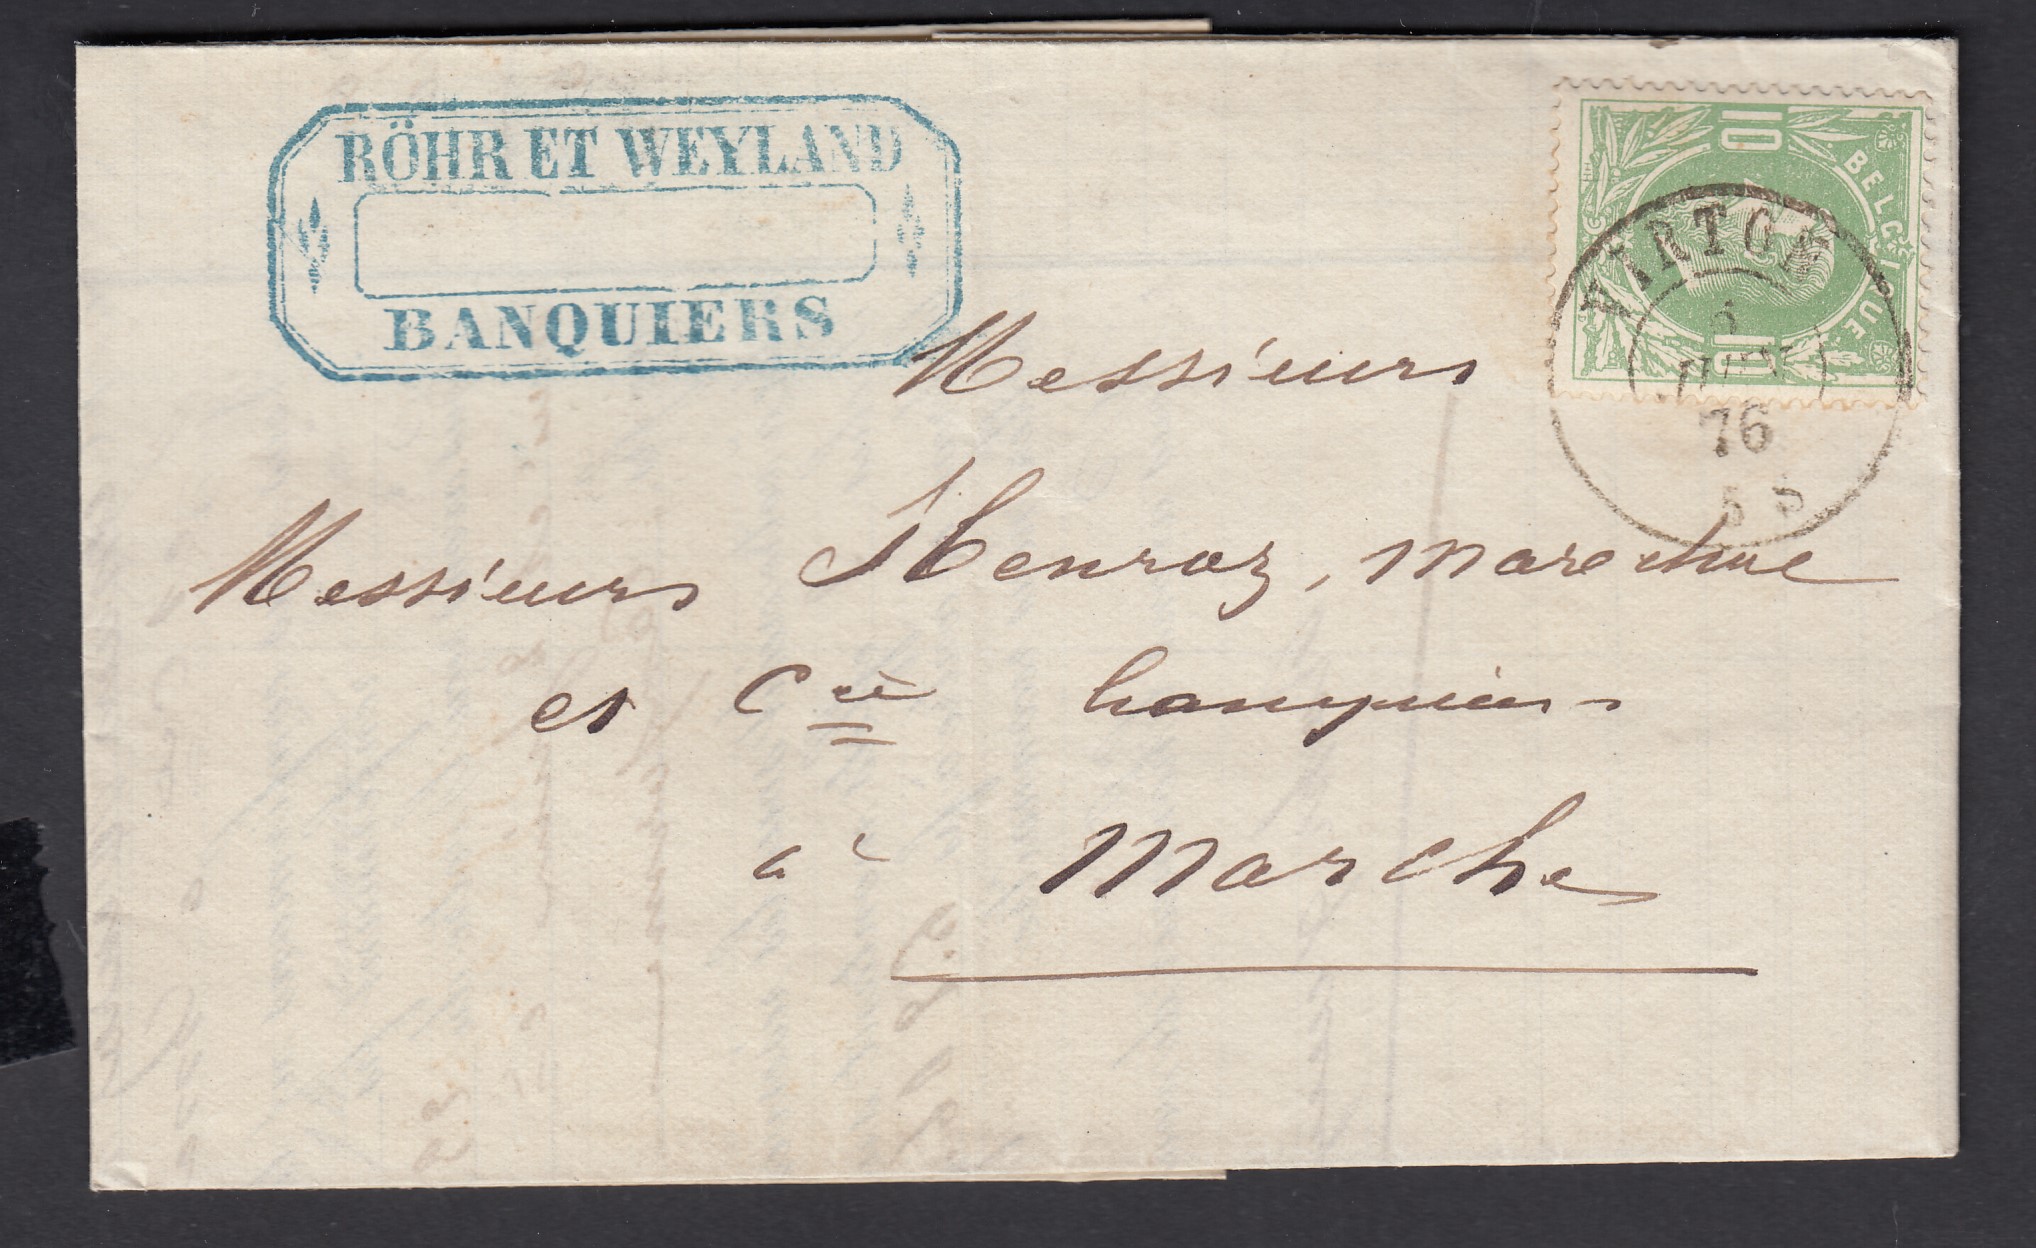 RÖHR ET WEYLAND
BANQUIERS
10 BELGIQUE 10
VIRTON
6
JUIN
76
5 S
Messieurs
Messieurs Henroz, Marechal
et Cie banquiers
à Marche